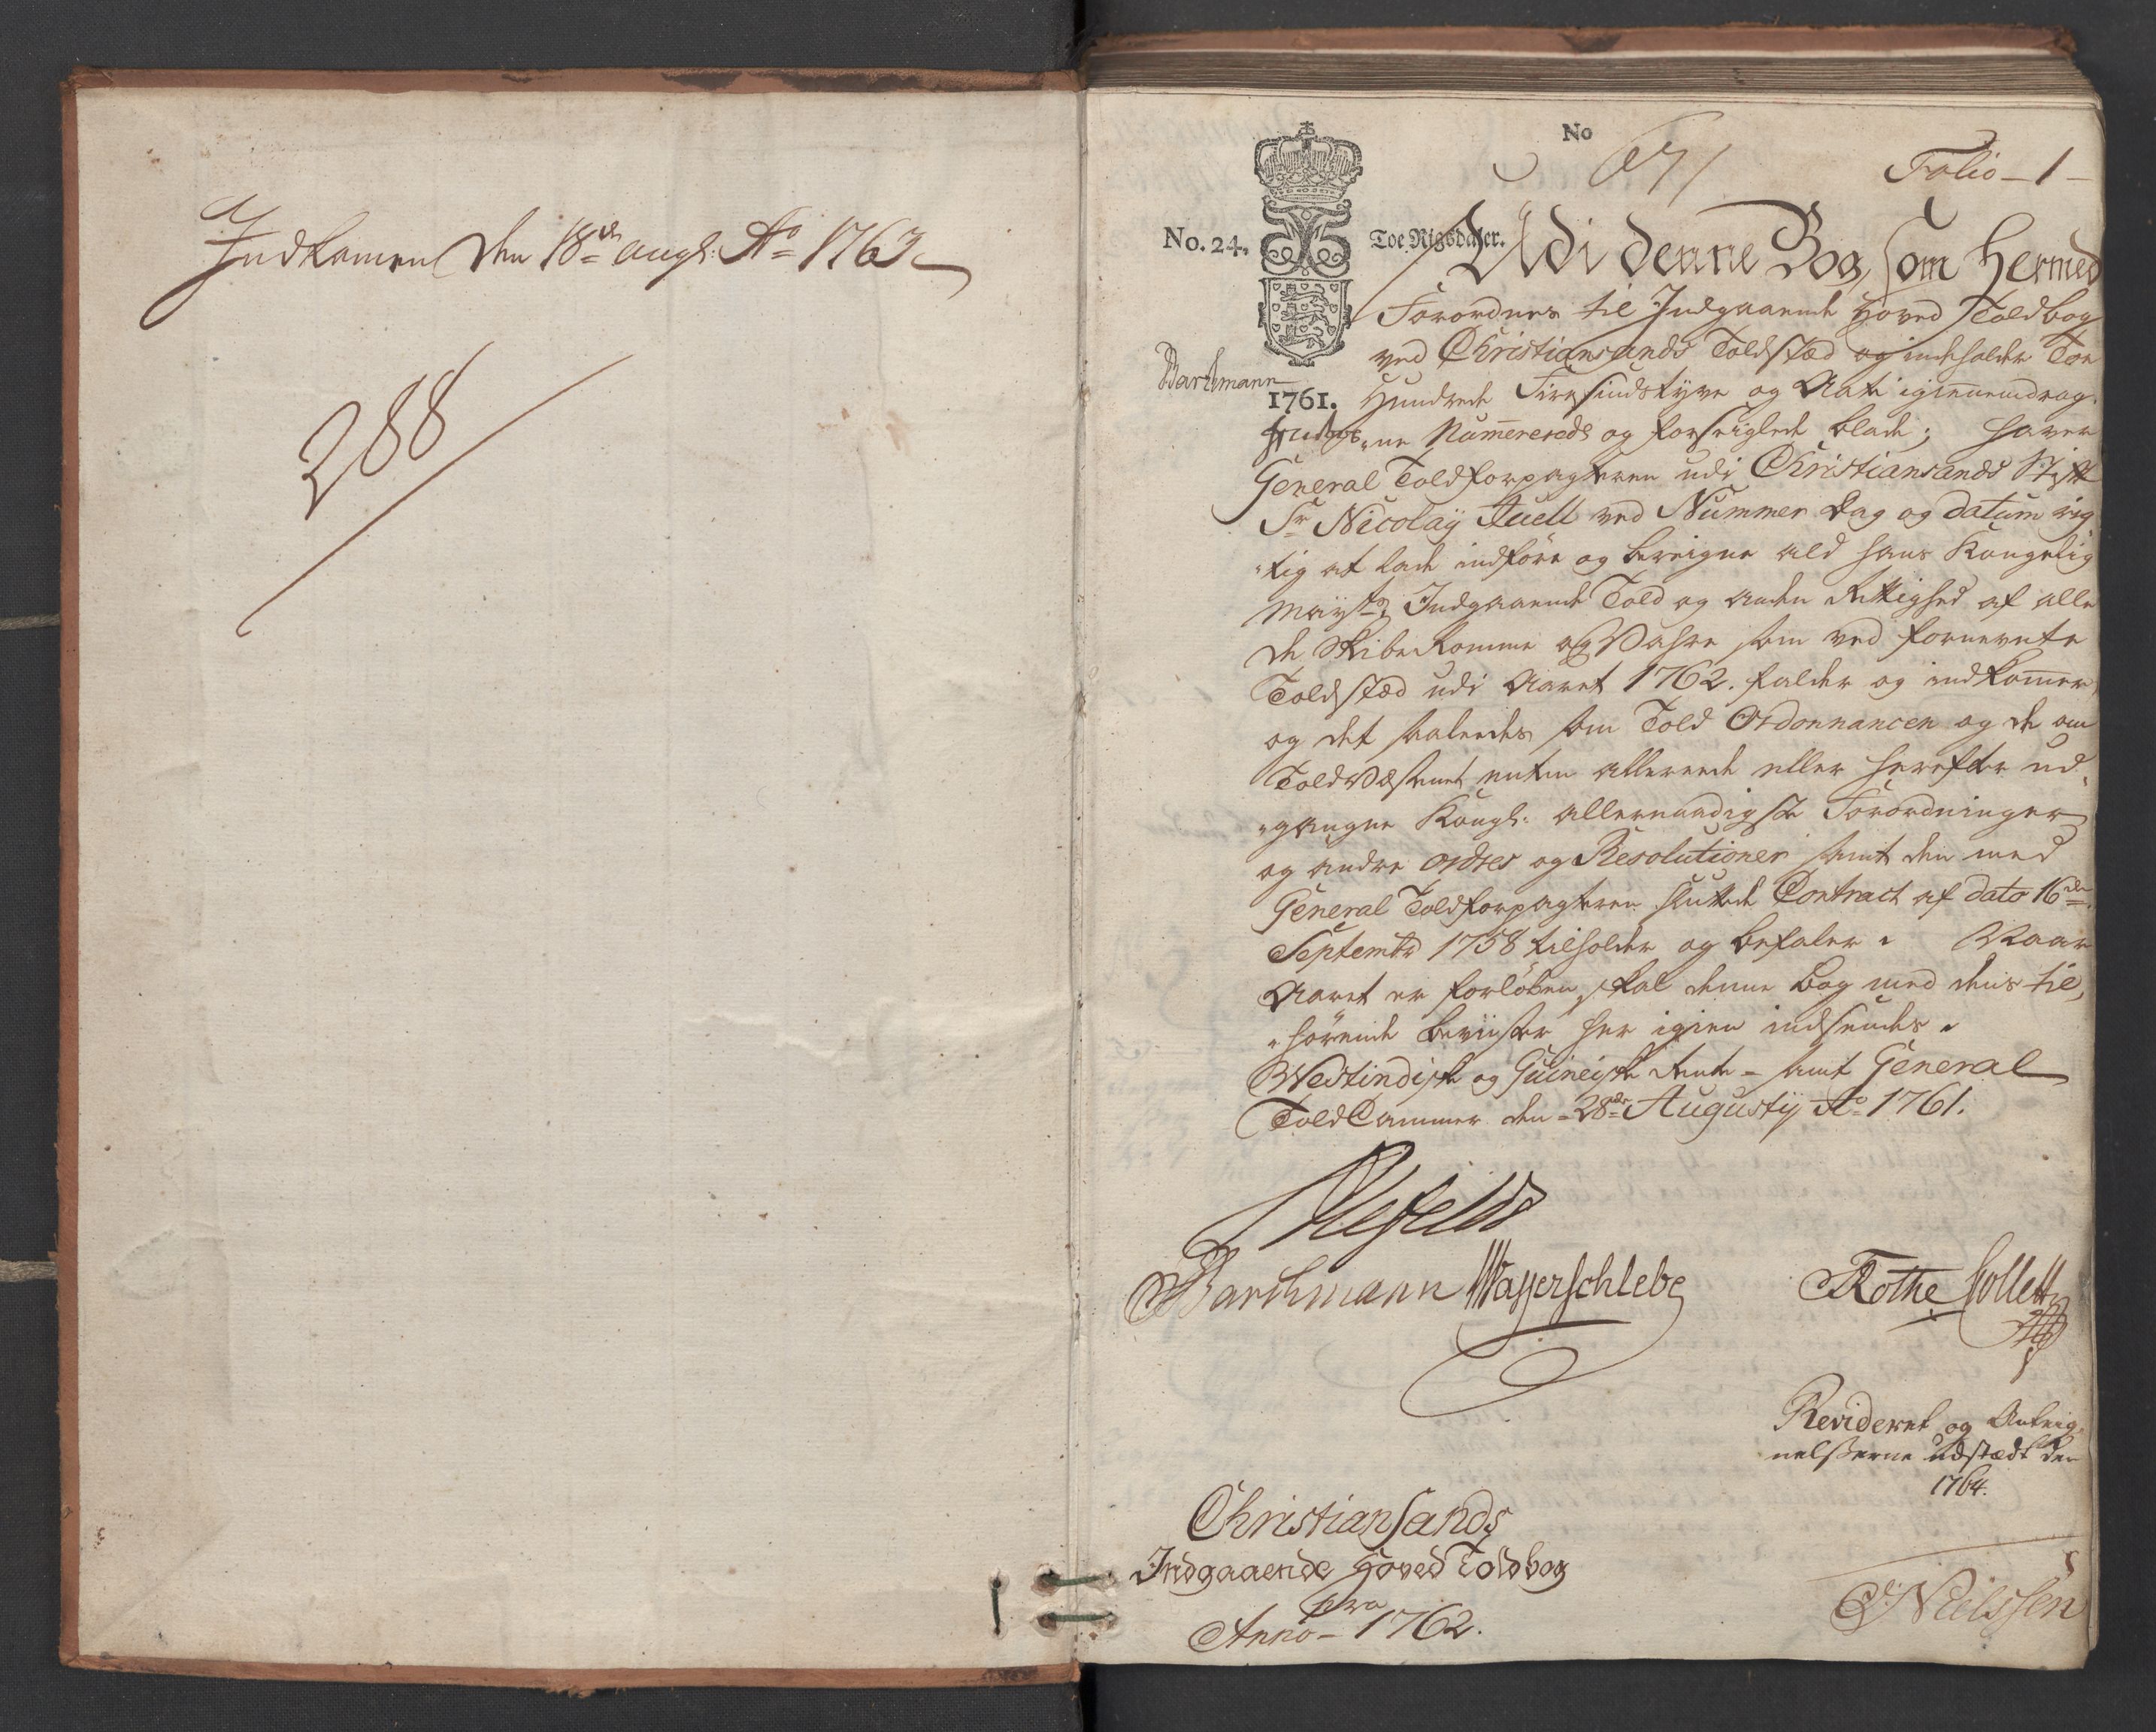 Indkomen den 18de augs: Ao 1763
288
No
671
Folio - 1 -
No. 24.
Toe Rigsdaler.
Udi denne Bog, som hermed
Forordnes til Indgaaende Hoved Toldbog
ved Christiansands Toldstæd og indeholder Toe
Barthmann
1761.
Hundrede Fiirsindstyve og Aate igiennemdrag,
„ne Nummerede og forseiglede blade; haver
General Toldforpagteren udi Christiansands Stift
Sr Nicolaÿ Juell ved Nummer Dag og datum rig
„tig at lade indføre og bereigne ald hans Kongelig
Mayts Indgaaende Told og anden Rettighed af alle
de Skibe Komme og Vahre som ved fornevnte
Toldstæd udi Aaret 1762. falder og indkommer
og det saaledes som Told Ordonnancen og de om
Toldvæsenet enten allereede eller herefter ud,
„gangne Kongl: allernaadigste Forordninger
og andre ordres og Resolutioner samt den med
General Toldforpagteren sluttede Contract af dato 16de
Septembr 1758 tilholder og befaler. Naar
Aaret er forløben, skal denne bog med dens til,
„hørende beviiser her igien indsendes.
Westindiske og Guineiske Rente - samt General
ToldCammer den - 28de Augustij Ao 1761.
Barthmann Wasserschlebe
Rothe Collett
Revideret og Anteig,
nelsserne udstædt den
1764.
Christiansands
Indgaaende Hoved Toldbog
pro
Anno - 1762.
Nielssen